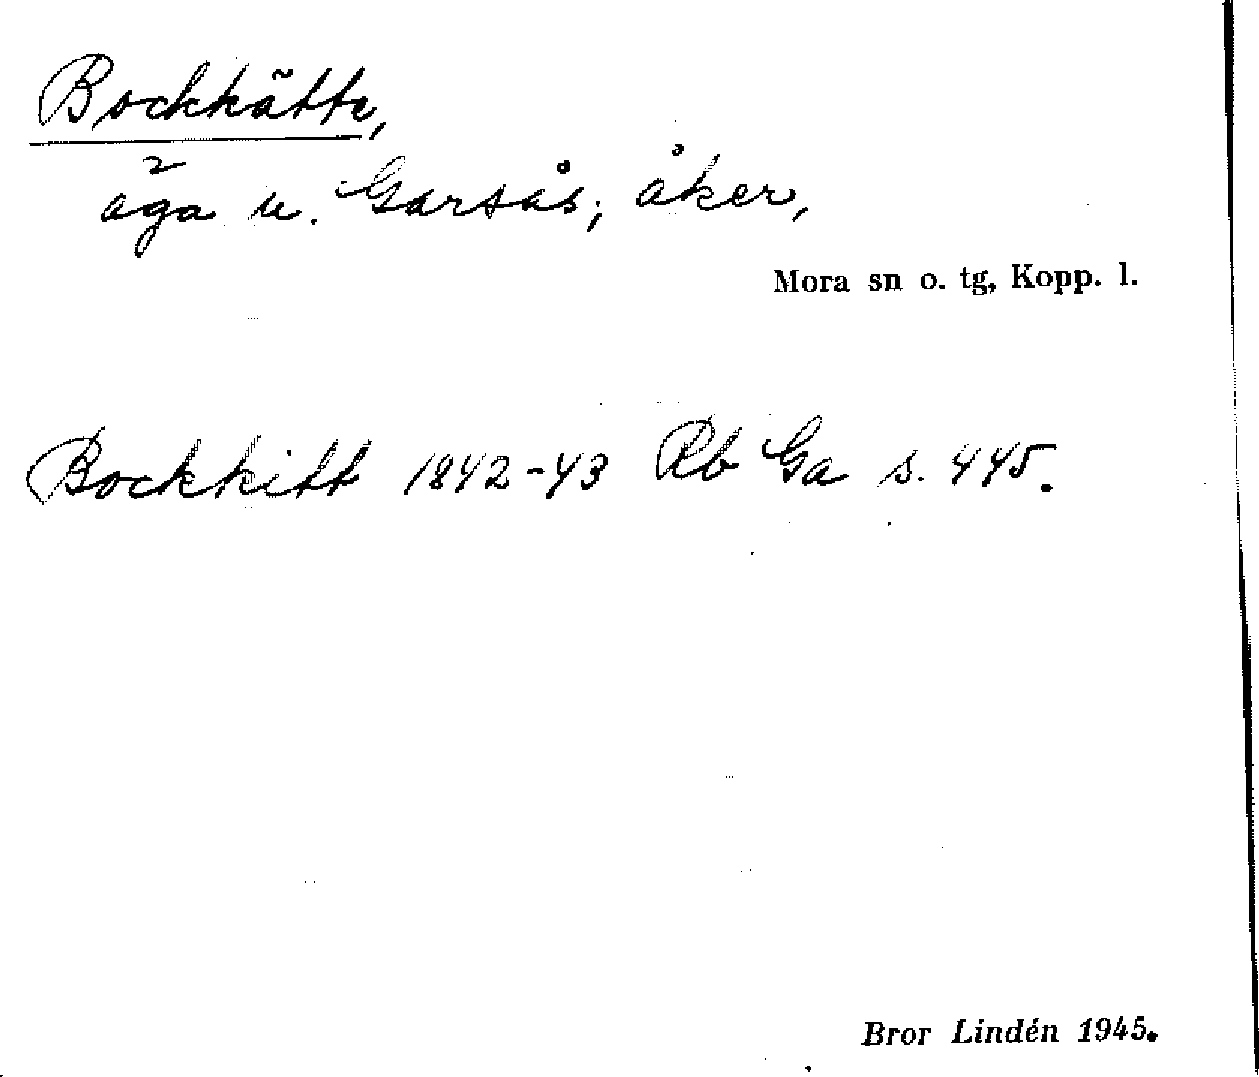 Bockkätte,
äga u. Garsås; åker,
Mora sn o. tg, Kopp. l.
Bockkitt 1842-43 Rb Ga s. 445.
Bror Lindén 1945.